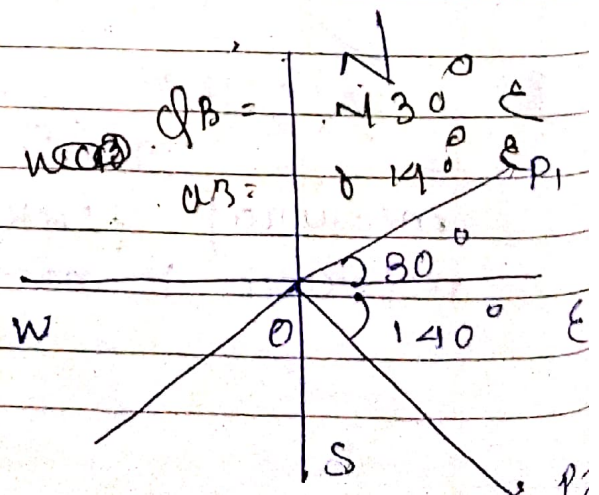 N
QB = N 30° E
WCB
QB = 14° E P1
30°
W O 140° E
S
P2